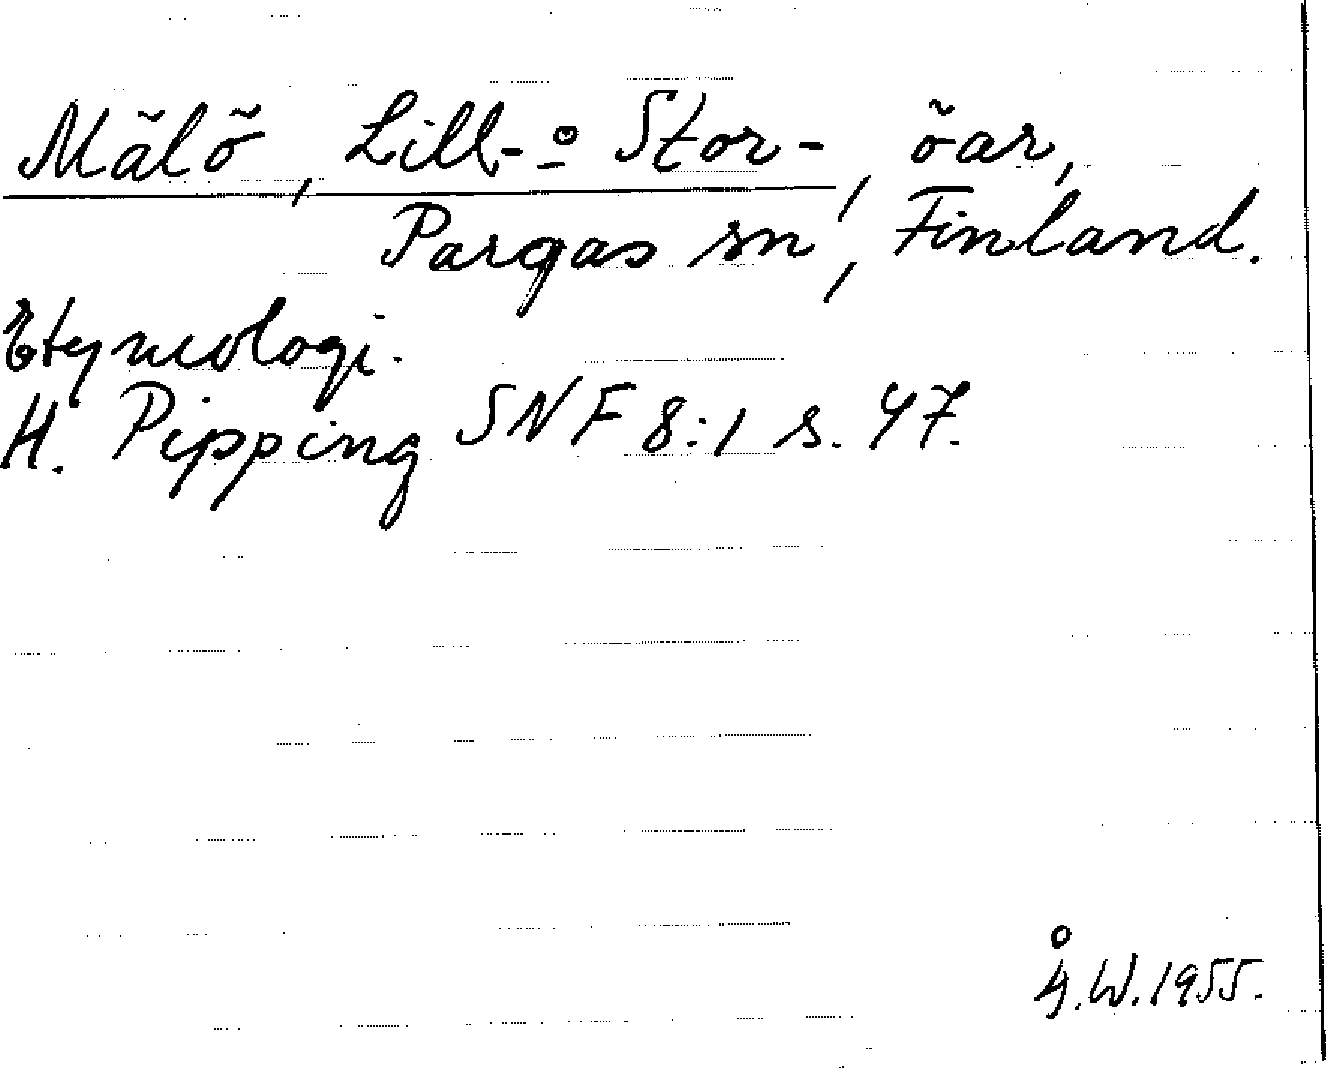 Mälö, Lill- o Stor-, öar,
Pargas sn, Finland.
Etymologi.
H. Pipping SNF 8:1 s. 47.
Å.W.1955.